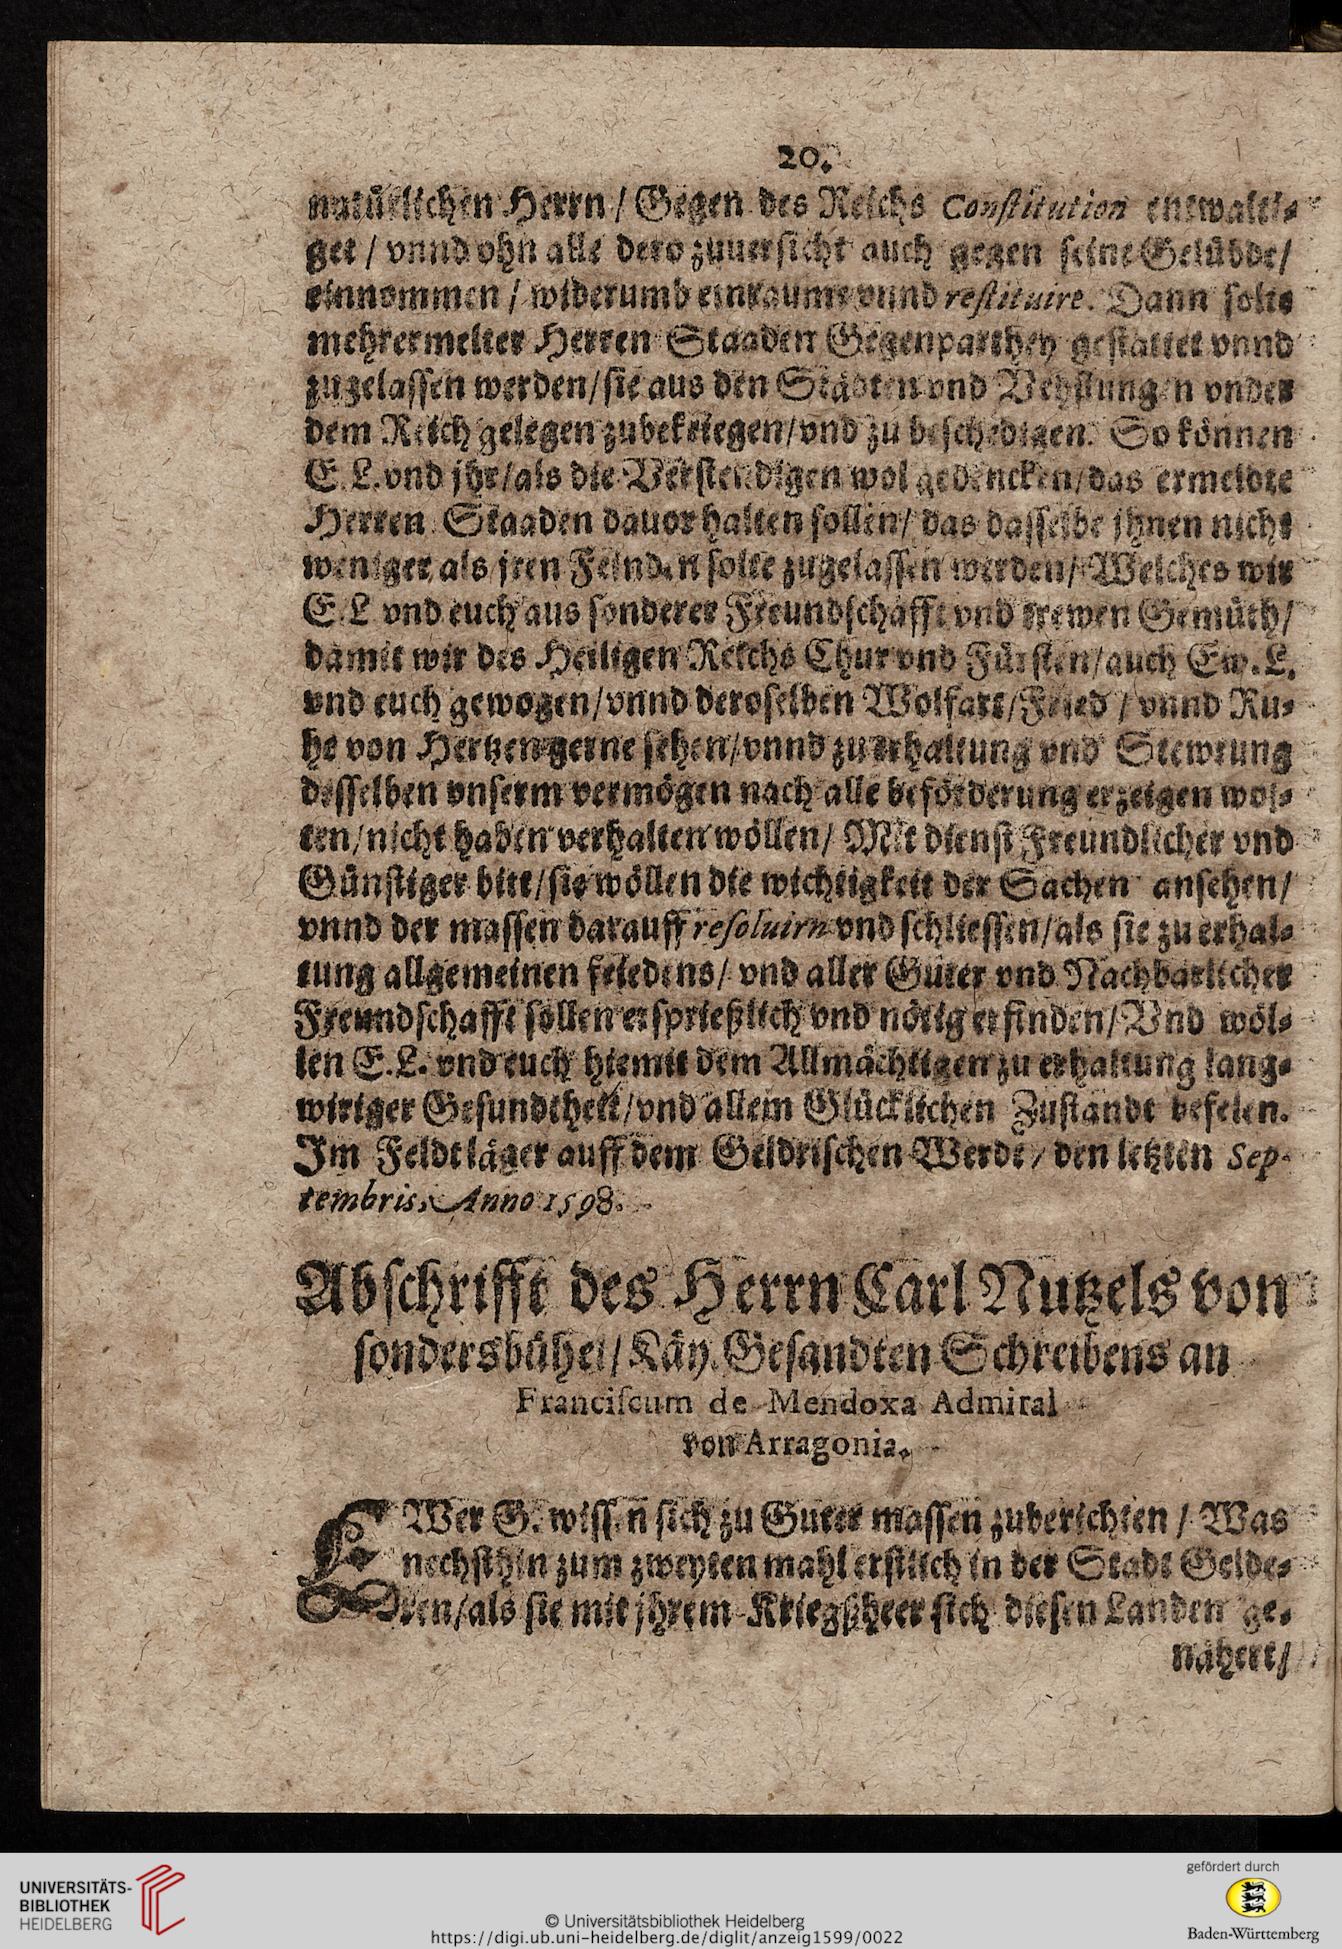 20.
natürlichen Herrn / Gegen des Reichs Constitution entwalti-
get / vnnd ohn alle dero zuuersicht auch gegen seine Gelübde/
einnommen / widerumb einraume vnnd restituire. Dann solte
mehrermelter Herren Staaden Gegenparthey gestattet vnnd
zugelassen werden/sie aus den Städten vnd Vehstungen vnder
dem Reich gelegen zubekriegen/vnd zu beschedigen. So können
E. L. vnd jhr/als die Verstendigen wol gedencken/das ermeldte
Herren Staaden dauor halten sollen/ das dasselbe jhnen nicht
weniger als jren Feinden solte zugelassen werden/ Welches wir
E. L vnd euch aus sonderer Freundschafft vnd trewen Gemüth/
damit wir des Heiligen Reichs Chur vnd Fürsten/auch Ew. L.
vnd euch gewogen/vnnd deroselben Wolfart/Fried / vnnd Ru-
he von Hertzen gerne sehen/vnnd zu erhaltung vnd Stewrung
desselben vnserm vermögen nach alle beförderung erzeigen wol-
ten/nicht haben verhalten wöllen/ Mit dienst Freundlicher vnd
Günstiger bitt/sie wöllen die wichtigkeit der Sachen ansehen/
vnnd der massen darauff resoluirn vnd schliessen/als sie zu erhal-
tung allgemeinen friedens/ vnd aller Guter vnd Nachbarlicher
Freundschafft sollen ersprießlich vnd nötig erfinden/ Vnd wöl-
len E. L. vnd euch hiemit dem Allmächtigen zu erhaltung lang-
wiriger Gesundtheit/vnd allem Glücklichen Zustandt befelen.
Im Feldtläger auff dem Geldrischen Werde/ den letzten Sep-
tembris, Anno 1598.
Abschrifft des Herrn Carl Nutzels von
sondersbühel/ Käy. Gesandten Schreibens an
Franciscum de Mendoxa Admiral
von Arragonia.
EWer G. wissen sich zu Guter massen zuberichten / Was
nechsthin zum zweyten mahl erstlich in der Stadt Gelde-
ren/als sie mit jhrem Kriegßheer sich diesen Landen ge-
nähert/
UNIVERSITÄTS-
BIBLIOTHEK
HEIDELBERG
© Universitätsbibliothek Heidelberg
https://digi.ub.uni-heidelberg.de/diglit/anzeig1599/0022
gefördert durch
Baden-Württemberg